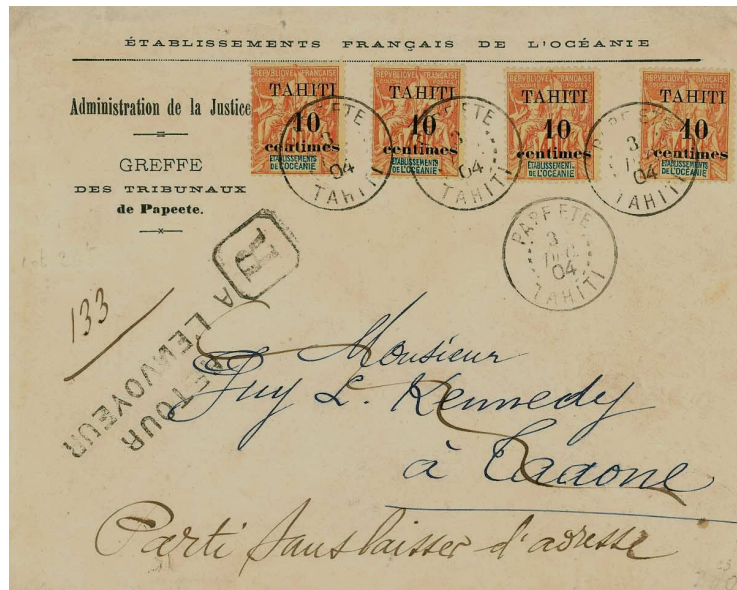 ÉTABLISSEMENTS FRANÇAIS DE L'OCÉANIE
Administration de la Justice
GREFFE
DES TRIBUNAUX
de Papeete.
REPUBLIQUE FRANÇAISE
TAHITI
10
centimes
ÉTABLISSEMENTS
DE L'OCÉANIE
REPUBLIQUE FRANÇAISE
TAHITI
10
centimes
ÉTABLISSEMENTS
DE L'OCÉANIE
REPUBLIQUE FRANÇAISE
TAHITI
10
centimes
ÉTABLISSEMENTS
DE L'OCÉANIE
REPUBLIQUE FRANÇAISE
TAHITI
10
centimes
ÉTABLISSEMENTS
DE L'OCÉANIE
PAPEETE
3
04
TAHITI
PAPEETE
3
04
TAHITI
PAPEETE
3
04
TAHITI
PAPEETE
3
DEC
04
TAHITI
R
133
RETOUR
A L'ENVOYEUR
Monsieur
Guy L. Kennedy
à Taaone
Parti sans laisser d'adresse